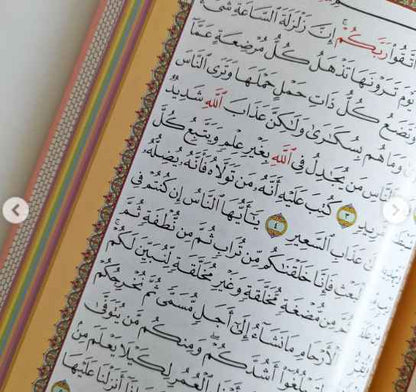 اتَّقُوا رَبَّكُمْ ۚ إِنَّ زَلْزَلَةَ السَّاعَةِ شَيْءٌ
تَرَوْنَهَا تَذْهَلُ كُلُّ مُرْضِعَةٍ عَمَّا
وَتَضَعُ كُلُّ ذَاتِ حَمْلٍ حَمْلَهَا وَتَرَى النَّاسَ
وَمَا هُم بِسُكَارَىٰ وَلَٰكِنَّ عَذَابَ اللَّهِ شَدِيدٌ
النَّاسِ مَن يُجَادِلُ فِي اللَّهِ بِغَيْرِ عِلْمٍ وَيَتَّبِعُ كُلَّ
٣ كُتِبَ عَلَيْهِ أَنَّهُ مَن تَوَلَّاهُ فَأَنَّهُ يُضِلُّهُ
عَذَابِ السَّعِيرِ ٤ يَا أَيُّهَا النَّاسُ إِن كُنتُمْ فِي
الْبَعْثِ فَإِنَّا خَلَقْنَاكُم مِّن تُرَابٍ ثُمَّ مِن نُّطْفَةٍ ثُمَّ
مِن مُّضْغَةٍ مُّخَلَّقَةٍ وَغَيْرِ مُخَلَّقَةٍ لِّنُبَيِّنَ لَكُمْ
الْأَرْحَامِ مَا نَشَاءُ إِلَىٰ أَجَلٍ مُّسَمًّى ثُمَّ نُخْرِجُكُمْ
لِتَبْلُغُوا أَشُدَّكُمْ ۖ وَمِنكُم مَّن يُتَوَفَّىٰ
الْعُمُرِ لِكَيْلَا يَعْلَمَ مِن
أَنزَلْنَا عَلَيْهَا